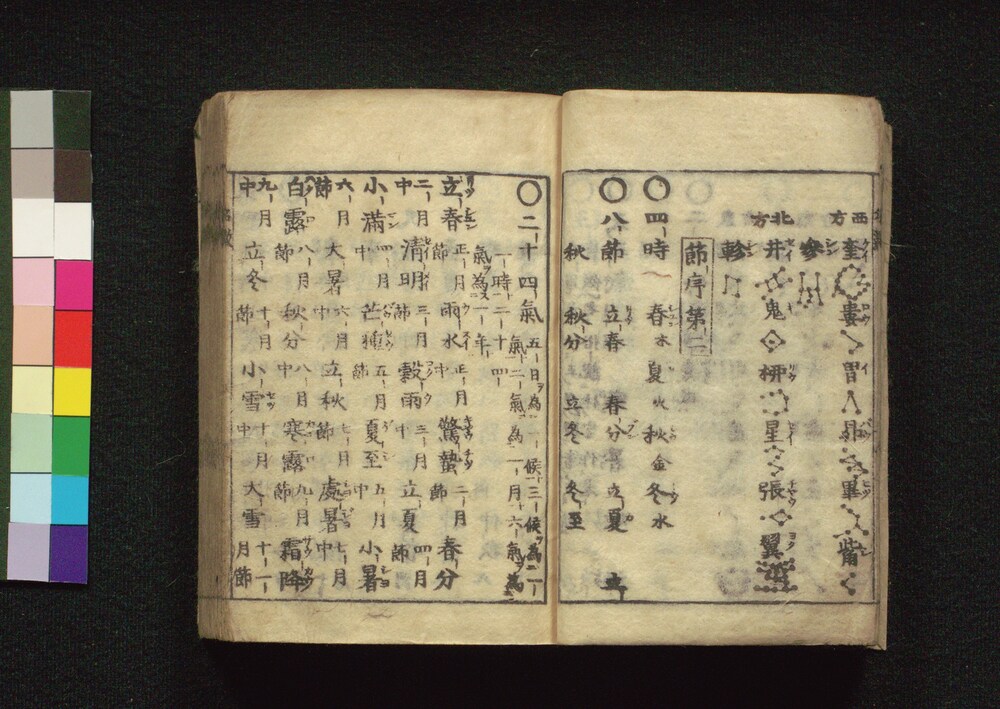 西方 奎 婁 胃 昴 畢 觜
參
北方 井 鬼 柳 星 張 翼
軫
節序第二
〇四時 春木 夏火 秋金 冬水
〇八節 立春 春分 立夏
秋 秋分 立冬 冬至
〇二十四氣 五日為一候三候為一
氣二氣為一月六氣為
一時二十四
氣為一年
立春 正月節 雨水 正月中 驚蟄 二月節 春分
二月中 清明 三月節 穀雨 三月中 立夏 四月節
小滿 四月中 芒種 五月節 夏至 五月中 小暑
六月節 大暑 六月中 立秋 七月節 處暑 七月中
白露 八月節 秋分 八月中 寒露 九月節 霜降
九月中 立冬 十月節 小雪 十月中 大雪 十一月節